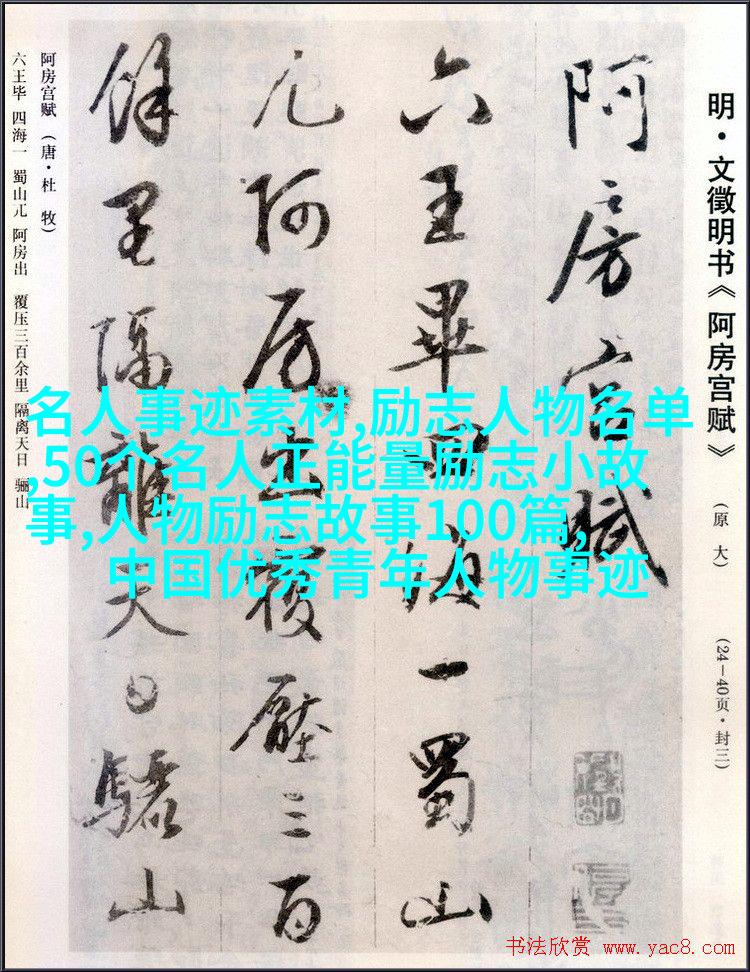 明·文徵明书《阿房宫赋》
(原大)
(24—40页·封三)
阿房宫赋
六王畢四海一蜀山
兀阿房出覆壓三百
餘里隔離天日驪山
阿房宫赋(唐·杜牧)
六王毕 四海一 蜀山兀 阿房出 覆压三百余里 隔离天日 骊山
名人事迹素材,励志人物名单
,50个名人正能量励志小故
事,人物励志故事100篇,
中国优秀青年人物事迹
书法欣赏 www.yac8.com